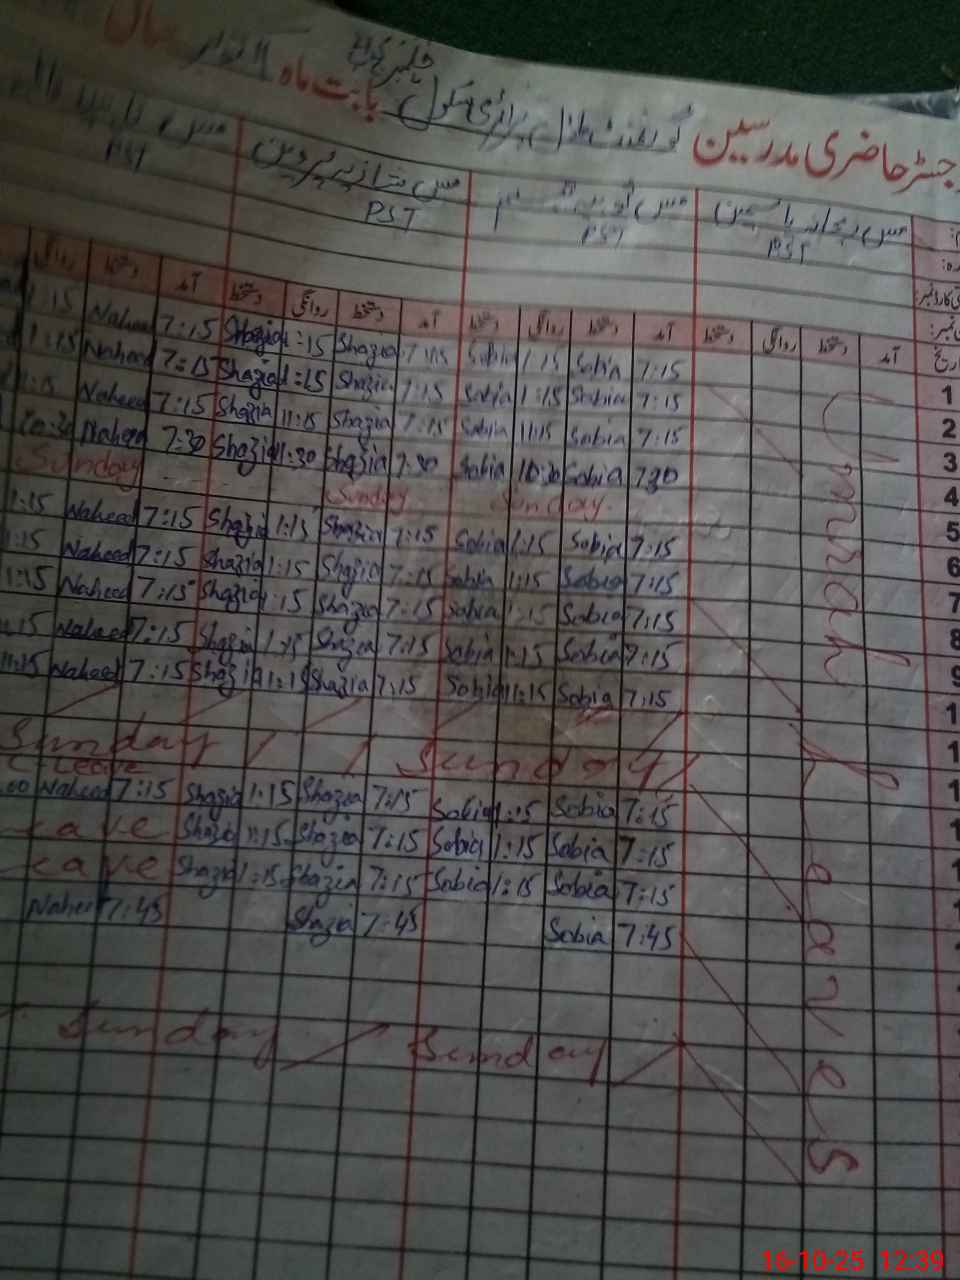 رجسٹر حاضری مدرسین گورنمنٹ گرلز پرائمری سکول بابت ماہ اکتوبر سال
مس ریحانہ یاسمین مس ثوبیہ مس شازیہ پروین مس
PST PST PST PST
تاریخ آمد دستخط روانگی دستخط آمد دستخط روانگی دستخط آمد دستخط روانگی دستخط آمد دستخط روانگی
1 7:15 Sobia 1:15 Sobia 7:15 Shazia 1:15 Shazia 7:15 Naheed 1:15
2 7:15 Sobia 1:15 Sobia 7:15 Shazia 1:15 Shazia 7:15 Naheed 1:15
3 7:15 Sobia 11:15 Sobia 7:15 Shazia 11:15 Shazia 7:15 Naheed 1:15
4 7:30 Sobia 10:30 Sobia 7:30 Shazia 11:30 Shazia 7:30 Naheed 10:30
5 Sunday Sunday Sunday
6 7:15 Sobia 1:15 Sobia 7:15 Shazia 1:15 Shazia 7:15 Naheed 1:15
7 7:15 Sobia 1:15 Sobia 7:15 Shazia 1:15 Shazia 7:15 Naheed 1:15
8 7:15 Sobia 1:15 Sobia 7:15 Shazia 1:15 Shazia 7:15 Naheed 1:15
9 7:15 Sobia 1:15 Sobia 7:15 Shazia 1:15 Shazia 7:15 Naheed
1 7:15 Sobia 11:15 Sobia 7:15 Shazia 11:15 Shazia 7:15 Naheed 11:15
Sunday Sunday
C leave
7:15 Sobia 1:15 Sobia 7:15 Shazia 1:15 Shazia 7:15 Naheed
7:15 Sobia 1:15 Sobia 7:15 Shazia 1:15 Shazia eave
7:15 Sobia 1:15 Sobia 7:15 Shazia 1:15 Shazia eave
7:45 Sobia 7:45 Shazia 7:45 Naheed
Sunday Sunday
Ummrah Leaves
16-10-25 12:39